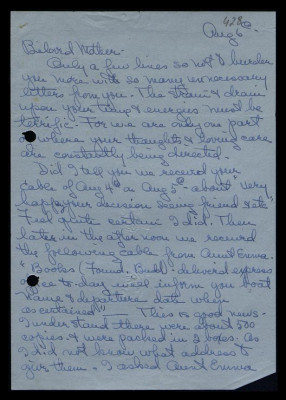 428
Aug 6
Beloved Mother -
Only a few lines so not to burden
you more with so many unnecessary
letters from you. The strain & drain
upon your time & energies must be
terrific. For we are only one part
of where your thoughts & loving care
are constantly being directed.
Did I tell you we received your
cable of Aug 4th or Aug 5th - about "Very
happy your decision seeing friend etc"
Feel quite certain I did. Then
later in the afternoon we received
the following cable from Aunt Emma.
"Books (Found. Budd.) delivered express
office to-day will inform you boat
name & departure date when
ascertained" This is good news -
I understand there were about 500
copies & were packed in 2 boxes. As
I did not know what address to
give them, I asked Aunt Emma